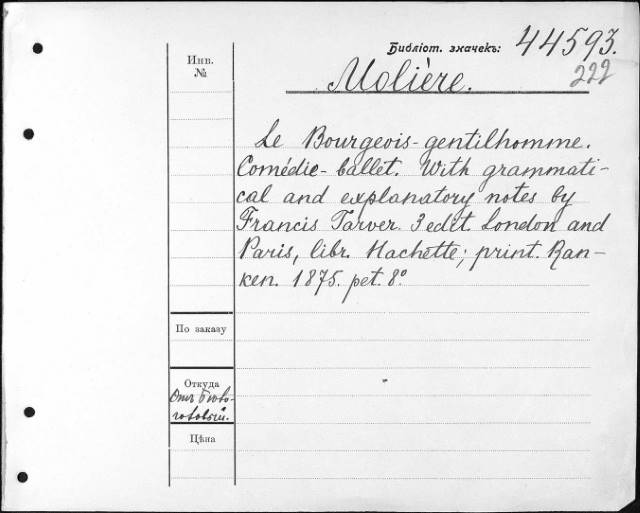 Библіот. значекъ: 44593.
222
Инв.
№
Molière.
Le Bourgeois-gentilhomme.
Comédie-ballet. With grammati-
cal and explanatory notes by
Francis Tarver. 3 edit. London and
Paris, libr. Hachette; print. Ran-
ken. 1875. pet. 8º
По заказу
Откуда
Цѣна